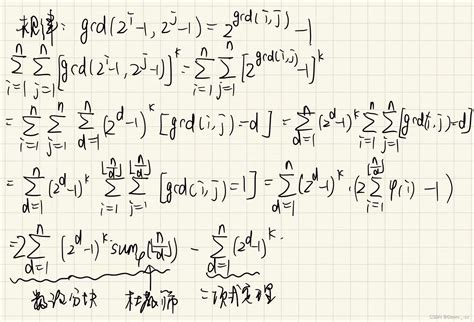 规律: gcd(2^i-1, 2^j-1) = 2^{gcd(i,j)} - 1
\sum_{i=1}^{n} \sum_{j=1}^{n} [gcd(2^i-1, 2^j-1)]^k = \sum_{i=1}^{n} \sum_{j=1}^{n} [2^{gcd(i,j)}-1]^k
= \sum_{i=1}^{n} \sum_{j=1}^{n} \sum_{d=1}^{n} (2^d-1)^k [gcd(i,j)=d] = \sum_{d=1}^{n} (2^d-1)^k \sum_{i=1}^{n} \sum_{j=1}^{n} [gcd(i,j)=d]
= \sum_{d=1}^{n} (2^d-1)^k \sum_{i=1}^{⌊n/d⌋} \sum_{j=1}^{⌊n/d⌋} [gcd(i,j)=1] = \sum_{d=1}^{n} (2^d-1)^k · (2\sum_{i=1}^{⌊n/d⌋} φ(i) - 1)
= 2\sum_{d=1}^{n} (2^d-1)^k · sum_φ(⌊n/d⌋) - \sum_{d=1}^{n} (2^d-1)^k.
数论分块 杜教筛 二项式定理